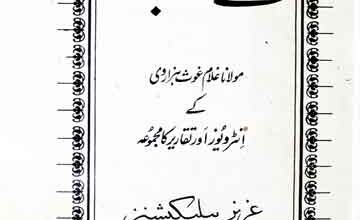 مولانا غلام غوث ہزاروی
کے
انٹرویوز اور تقاریر کا مجموعہ
عزیز پبلیکیشنز